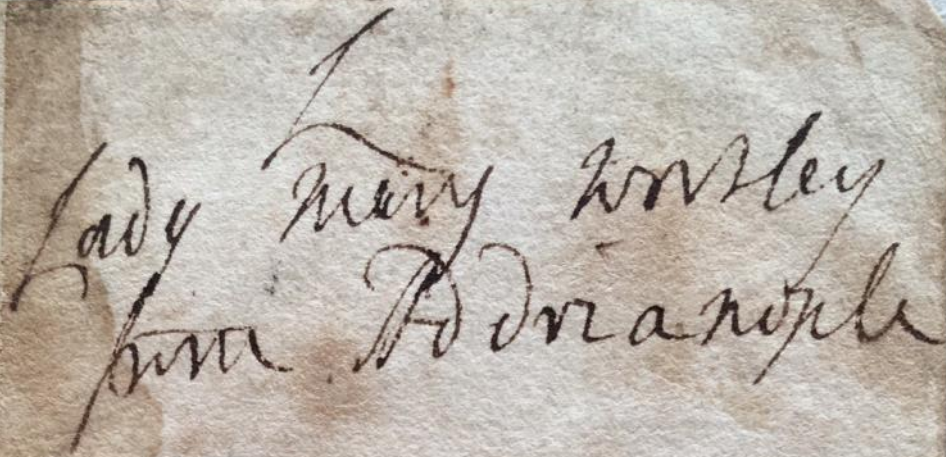 L
Lady Mary Wortley
from Addrianople